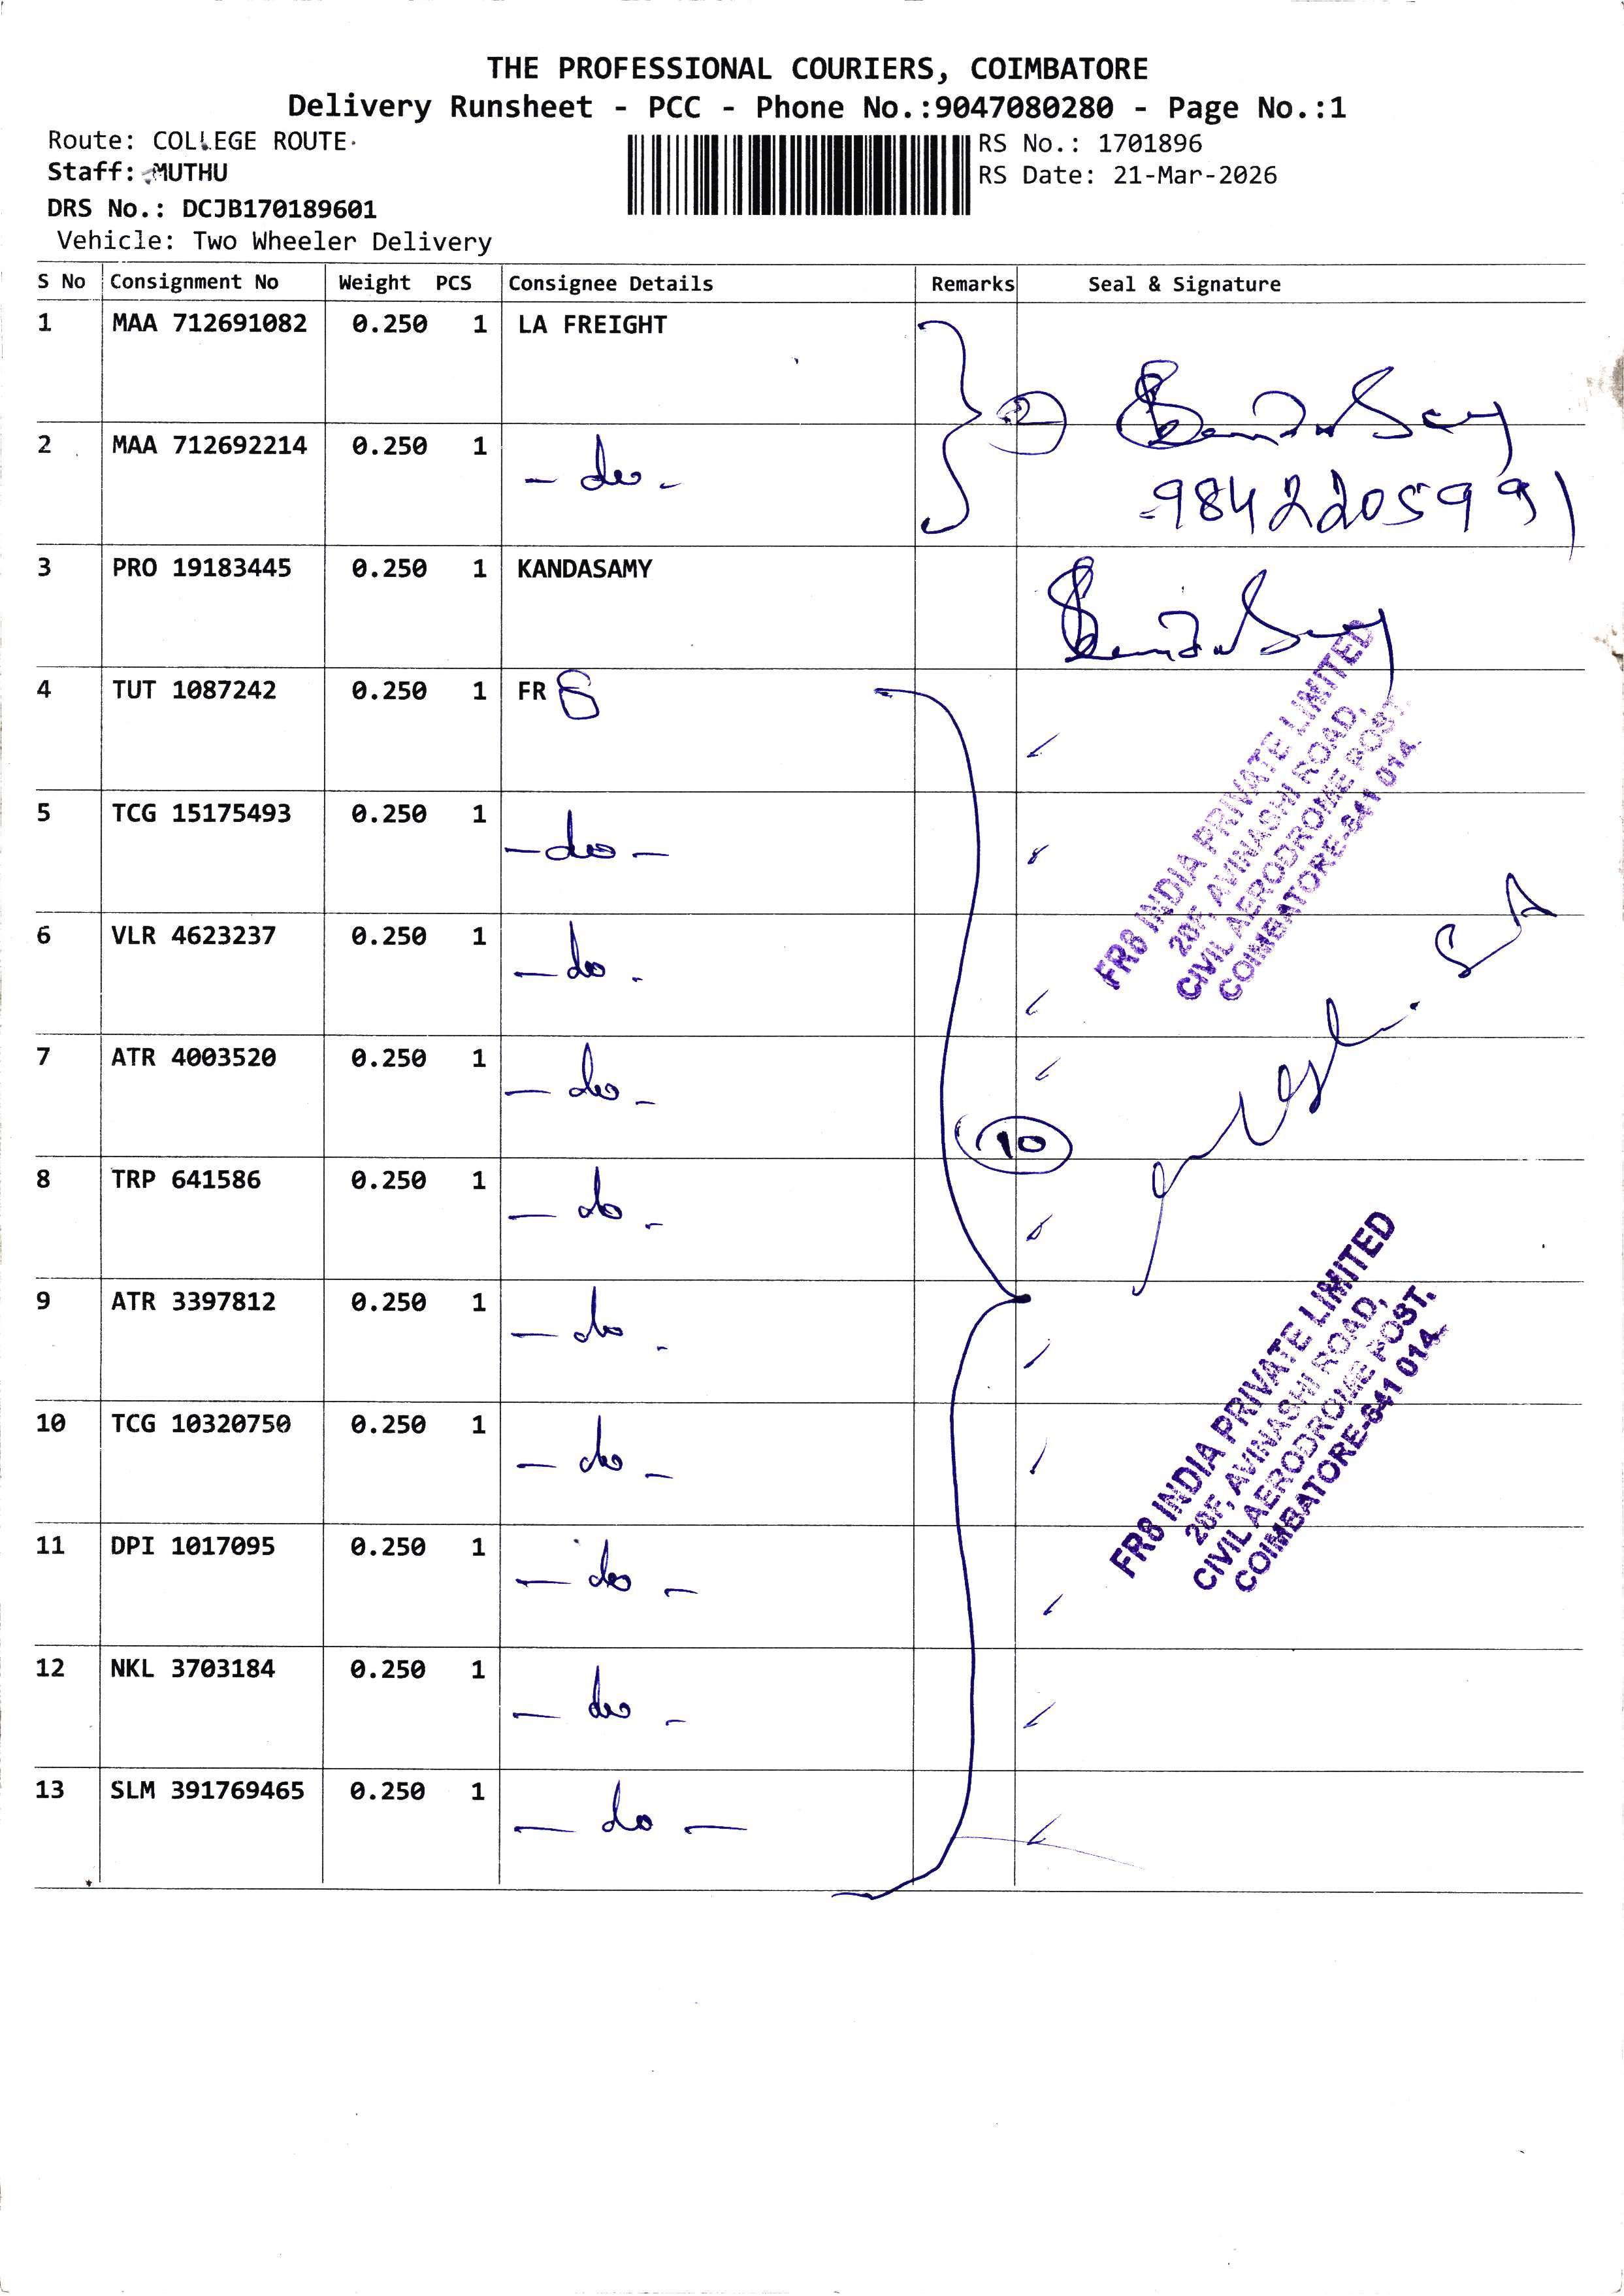 THE PROFESSIONAL COURIERS, COIMBATORE
Delivery Runsheet - PCC - Phone No.:9047080280 - Page No.:1
Route: COLLEGE ROUTE
Staff: MUTHU
DRS No.: DCJB170189601
Vehicle: Two Wheeler Delivery
RS No.: 1701896
RS Date: 21-Mar-2026
S No Consignment No Weight PCS Consignee Details Remarks Seal & Signature
1 MAA 712691082 0.250 1 LA FREIGHT
2
2 MAA 712692214 0.250 1 - do -
9842205991
3 PRO 19183445 0.250 1 KANDASAMY
4 TUT 1087242 0.250 1 FR 8
5 TCG 15175493 0.250 1 - do -
6 VLR 4623237 0.250 1 - do -
FR8 INDIA PRIVATE LIMITED
20F, AVINASHI ROAD,
CIVIL AERODROME POST.
COIMBATORE-641 014.
7 ATR 4003520 0.250 1 - do -
10
8 TRP 641586 0.250 1 - do -
9 ATR 3397812 0.250 1 - do -
10 TCG 10320750 0.250 1 - do -
FR8 INDIA PRIVATE LIMITED
20F, AVINASHI ROAD,
CIVIL AERODROME POST.
COIMBATORE-641 014.
11 DPI 1017095 0.250 1 - do -
12 NKL 3703184 0.250 1 - do -
13 SLM 391769465 0.250 1 - do -